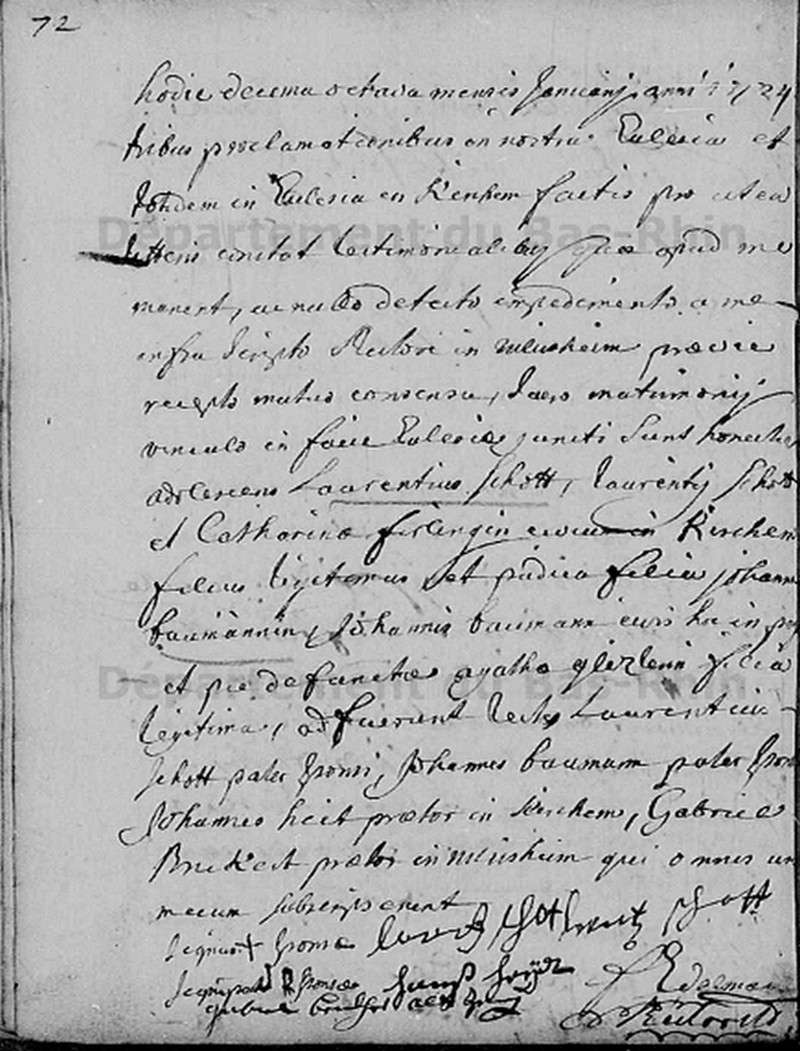 72
hodie decima octava mensis Januarij anni 1724
tribus proclamationibus in nostra Eclesia et
totidem in Eclesia in Kirchem factis pro ut ex
litteris constat testimonialibus quae apud me
manent, ac nullo detecto impedimento a me
infra scripto Rectore in praevie
recepto mutuo consensu, sacro matrimonij
vinculo in facie Eclesiae juncti sunt honestus
adolescens Laurentius Schott, Laurentij Schott
et Catharinae civium in Kirchem
filius legitimus et pudica filia Johanna
baumännin, Johannis baumann civis huius
et pie defunctae agathae filia
legitima, adfuerunt testes Laurentius
Schott pater sponsi, Johannes baumann pater sponsae
Johannes heit praetor in Kirchem, Gabriel
praetor in qui omnes una
mecum subscripserunt
signum + sponsae Schott
signum patris sponsae
Edelman
Rector
Département du Bas-Rhin
Département du Bas-Rhin